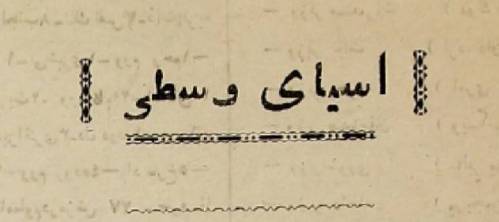 اسیای وسطی